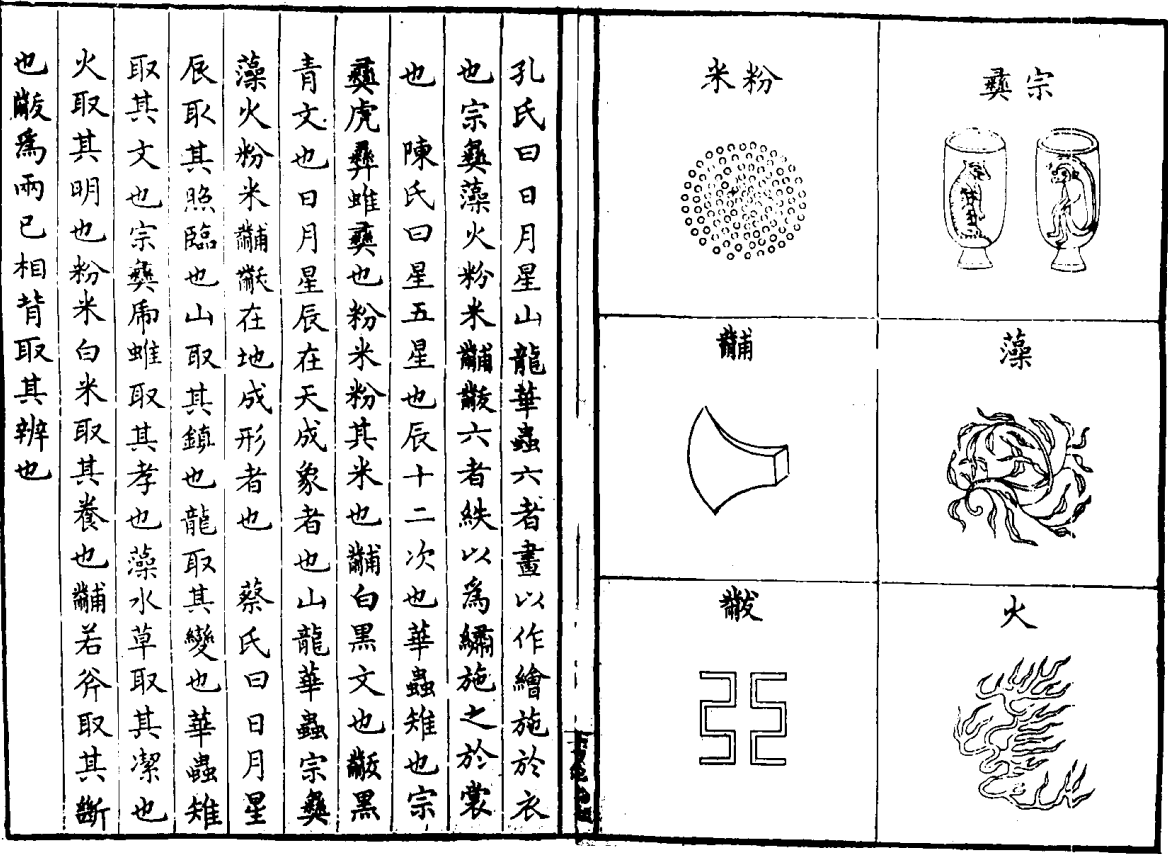 宗彝
藻
火
粉米
黼
黻
孔氏曰日月星山龍華蟲六者畫以作繪施於衣
也宗彝藻火粉米黼黻六者絺以為繡施之於裳
也　陳氏曰星五星也辰十二次也華蟲雉也宗
彝虎彝蜼彝也粉米粉其米也黼白黑文也黻黑
青文也日月星辰在天成象者也山龍華蟲宗彝
藻火粉米黼黻在地成形者也　蔡氏曰日月星
辰取其照臨也山取其鎮也龍取其變也華蟲雉
取其文也宗彝虎蜼取其孝也藻水草取其潔也
火取其明也粉米白米取其養也黼若斧取其斷
也黻為兩己相背取其辨也